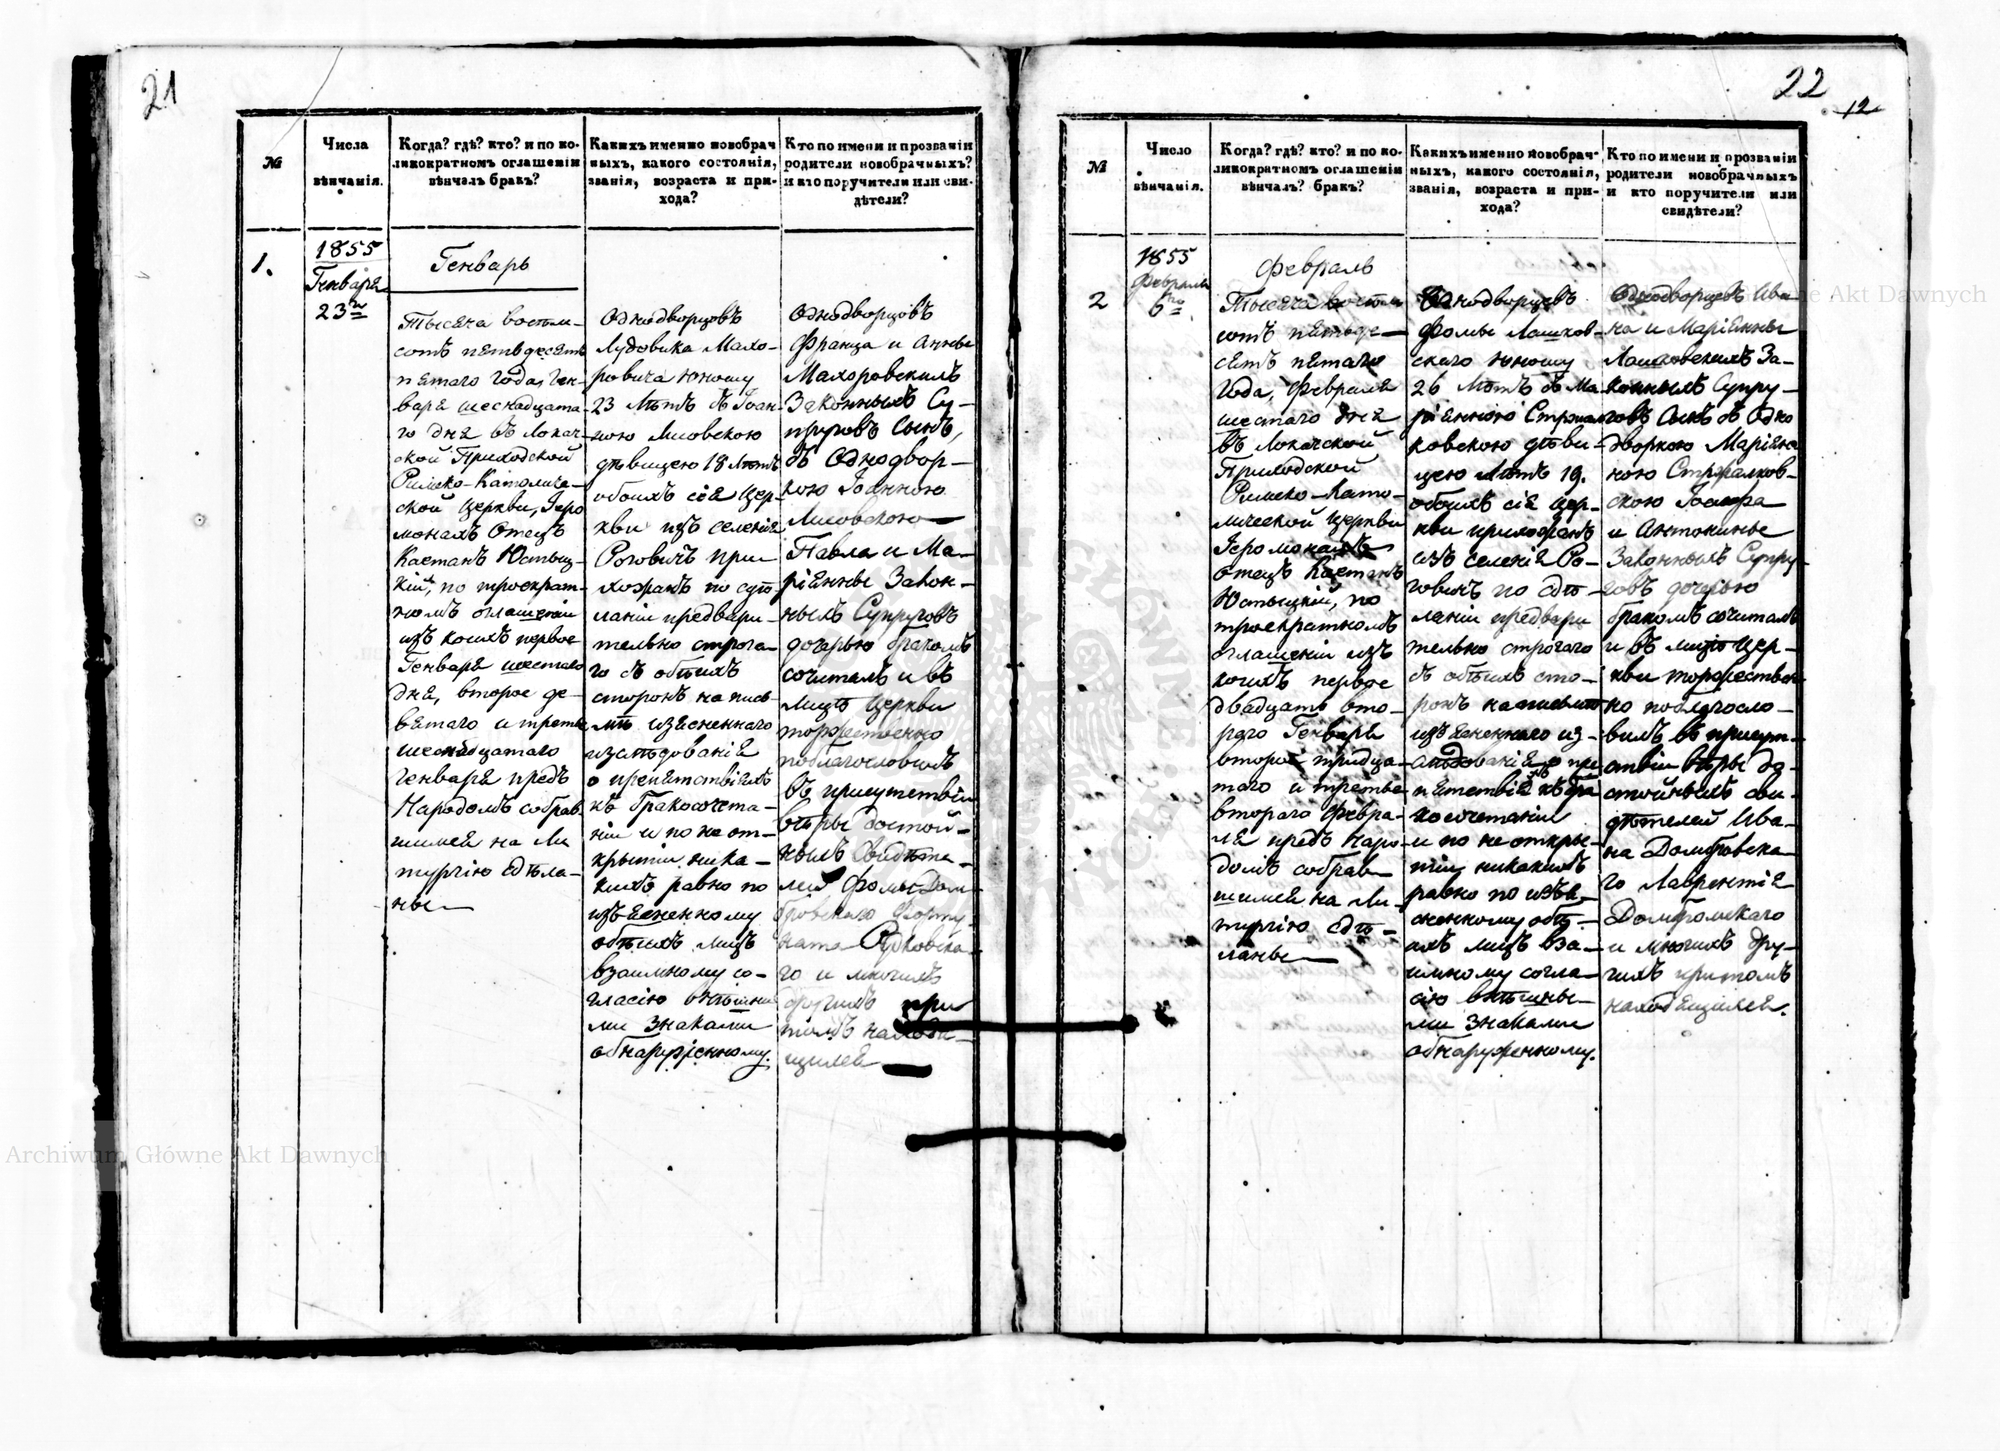 21
№
Числа
вѣнчанія.
Когда? гдѣ? кто? и по ко-
ликократномъ оглашеніи
вѣнчалъ бракъ?
Какихъ именно новобрач
ныхъ, какого состоянія,
званія, возраста и при-
хода?
Кто по имени и прозваніи
родители новобрачныхъ?
и кто поручители или сви-
дѣтели?
1.
1855
Генваря
23го
Генварь
Тысяча восем-
сотъ пятьдесятъ
пятаго года, Ген-
варя шеснадцата-
го дня въ Локач-
ской Приходской
Римско-Католиче-
ской Церкви, Іеро
монахъ Отецъ
Каетанъ
кій, по троекрат-
номъ оглашеніи
изъ коихъ первое
Генваря шестаго
дня, второе де-
вятаго и третье
шеснадцатаго
Генваря предъ
Народомъ собрав-
шимся на Ли
тургію сдѣла-
ны
Однодворцовъ
Лудовика Махо-
ровича юношу
23 Лѣтъ съ Іоан-
ною Лисовскою
дѣвицею 18 Лѣтъ
обоихъ сія Цер-
кви изъ селенія
Роговичъ при
хожанъ по сдѣ
ланіи предвари-
тельно строга-
го съ обѣихъ
сторонъ на пись-
мѣ изясненнаго
изслѣдованія
о препятствіяхъ
къ бракосочета-
ніи и по не от-
крытіи ника-
кихъ равно по
изъясненному
обѣихъ лицъ
взаимному со-
гласію внѣшни
ми знаками
обнаруженному.
Однодворцовъ
Франца и Анны
Махоровскихъ
Законныхъ Су-
пруговъ Сынъ,
съ Однодвор-
кою Іоанною
Лисовскою
Павла и Ма-
ріянны Закон-
ныхъ Супруговъ
дочерью бракомъ
сочиталъ и въ
лицѣ Церкви
торжественно
поблагословилъ
въ присутствіи
вѣры достой-
ныхъ Свидѣте-
лей Фомы Дом-
бровскаго Форту
ната
го и многихъ
другихъ при
томъ находя-
щихся
22
12
№
Число
вѣнчанія.
Когда? гдѣ? кто? и по ко-
ликократномъ оглашеніи
вѣнчалъ? бракъ?
Какихъ именно новобрач-
ныхъ, какого состоянія,
званія, возраста и при-
хода?
Кто по имени и прозваніи
родители новобрачныхъ
и кто поручители или
свидѣтели?
2
1855
Февраля
6го
Февраль
Тысяча восем
сотъ пятьде-
сятъ пятаго
года, Февраля
шестаго дня
въ Локачской
Приходской
Римско-Като-
лической Церкви
Іеромонахъ
отецъ Каетанъ
по
троекратномъ
оглашеніи изъ
коихъ первое
двадцать вто-
раго Генваря
второе тридца-
таго и третье
втораго Февра-
ля предъ Наро-
домъ собрав-
шимся на Ли-
тургію сдѣ-
ланы
Однодворцевъ
Фомы Лашков-
скаго юношу
26 Лѣтъ съ Ма-
ріянною Стржал
ковскою дѣви-
цею Лѣтъ 19.
обоихъ сія Цер-
кви прихожанъ
изъ селенія Ро-
говичъ по сдѣ-
ланіи предвари
тельно строгаго
съ обѣихъ сто-
ронъ на письмѣ
изъясненнаго из-
слѣдованія о пре
пятствіяхъ къ бра
косочетаніи
и по не откры-
тіи никакихъ
равно по изъя-
сненному обѣ-
ихъ лицъ вза-
имному согла-
сію внѣшны-
ми знаками
обнаруженному.
Однодворцевъ Ива
на и Маріянны
Лашковскихъ За-
конныхъ Супру-
говъ Сынъ съ Одно
дворкою Маріян
ною Стржалков-
скою Іосифа
и Антонины
Законныхъ Супру
говъ дочерью
бракомъ сочиталъ
и въ лицѣ Цер-
кви торжествен
но поблагосло-
вилъ въ присут-
ствіи вѣры до-
стойныхъ сви-
дѣтелей Ива-
на Домбровска-
го Лаврентія
Домбровскаго
и многихъ дру-
гихъ притомъ
находящихся.
Archiwum Główne Akt Dawnych